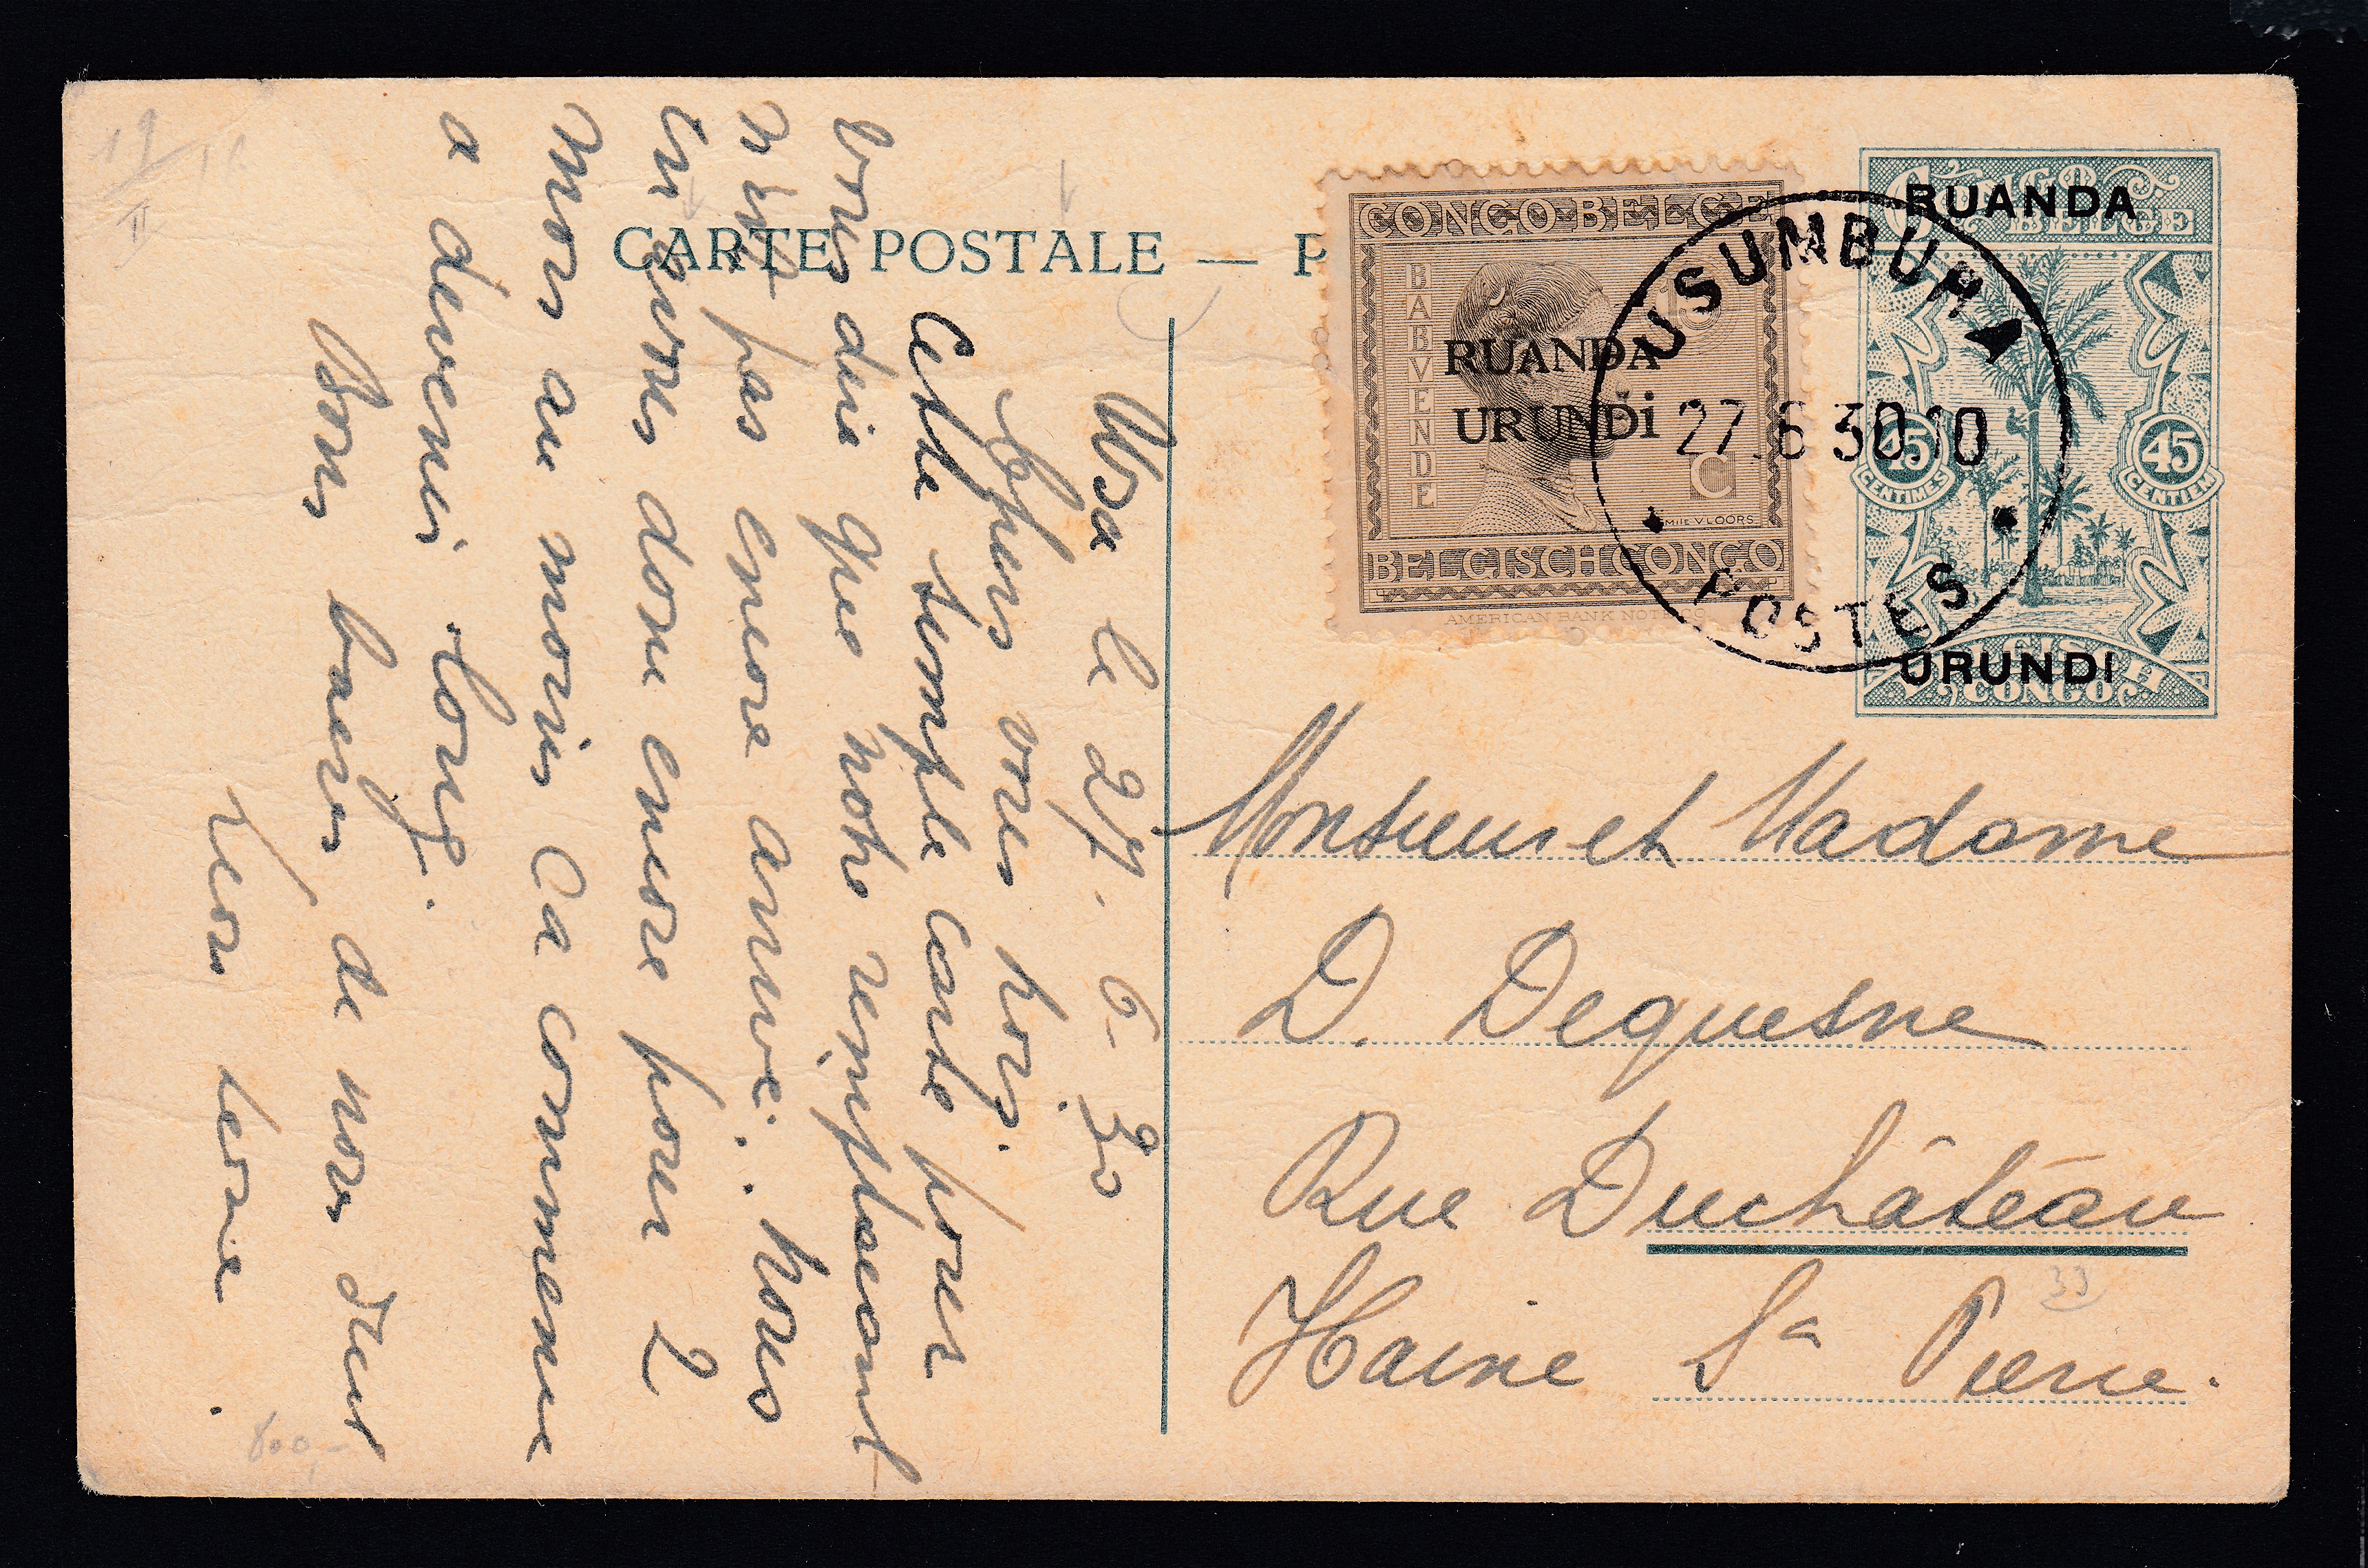 CARTE POSTALE — P
CONGO BELGE
BABVENDE
15
C
RUANDA
URUNDI
Mile VLOORS
BELGISCH CONGO
AMERICAN BANK NOTE
BELGE
RUANDA
45 CENTIMES
45 CENTIEM
URUNDI
CONGO
USUMBURA
27.6 30.10
POSTES
Monsieur et Madame
D. Dequesne
Rue Duchâteau
Haine St Pierre.
33
Usa le 27. 6. 30
Chers vous
Cette simple carte pour
vous dire que notre remplacant
n'est pas encore arrivé. Nous
en avons donc encore pour 2
mois au moins Ca commence
a devenir long.
Bons baisers de nous deux
800,-